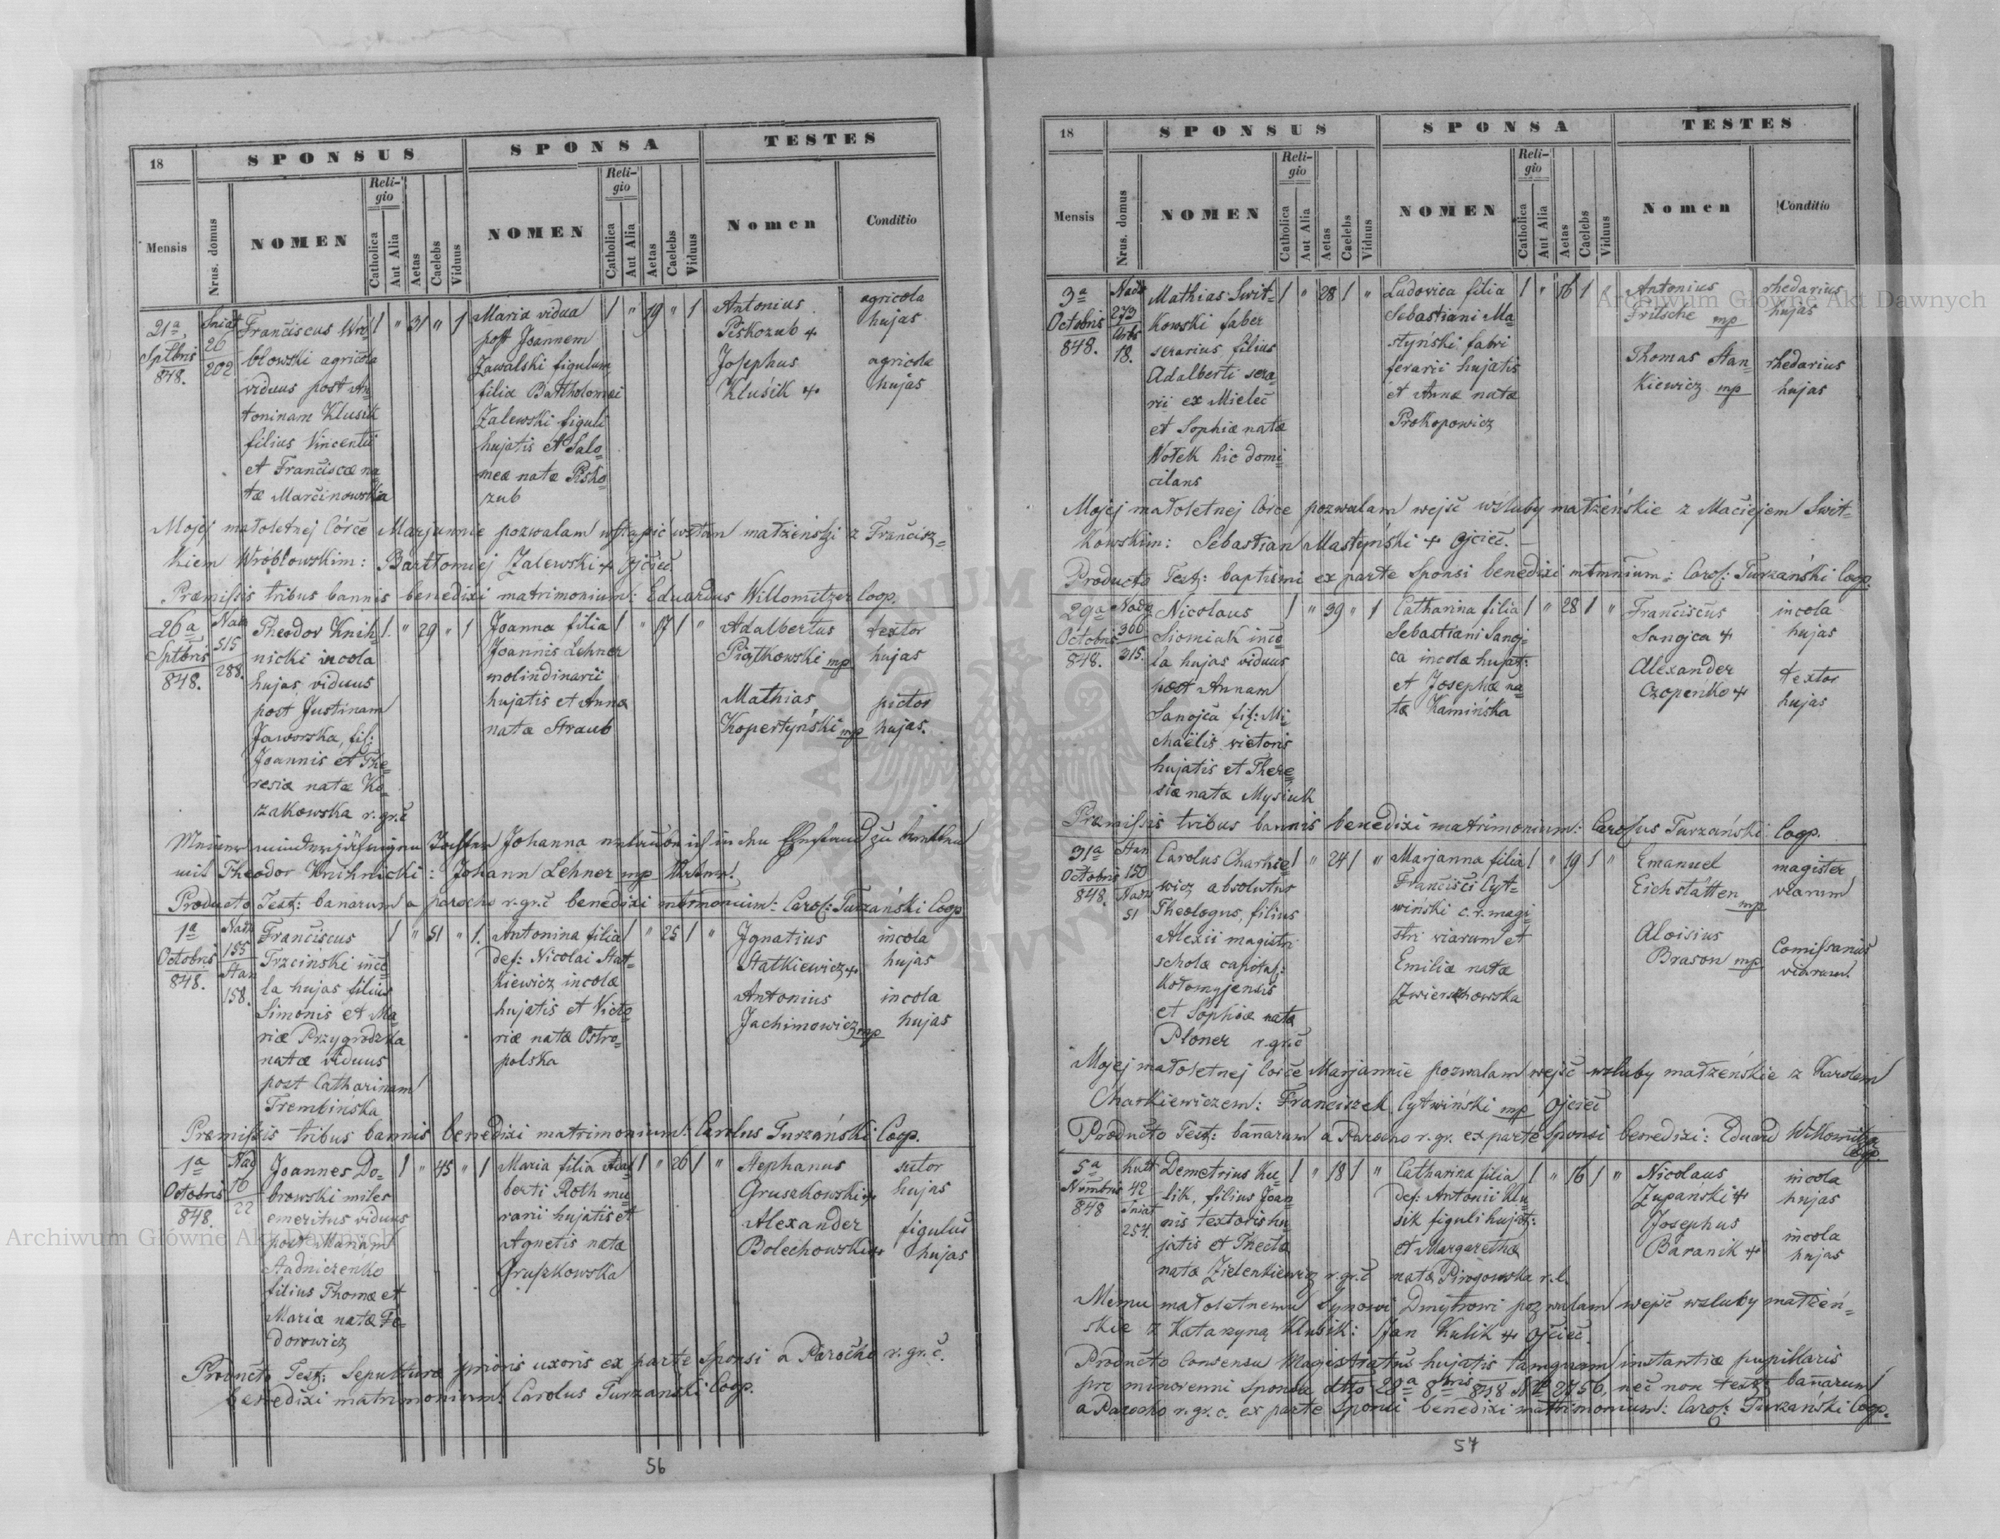 18
SPONSUS
SPONSA
TESTES
Mensis
Nrus. domus
NOMEN
Religio
Catholica
Aut Alia
Aetas
Caelebs
Viduus
NOMEN
Religio
Catholica
Aut Alia
Aetas
Caelebs
Viduus
Nomen
Conditio
21a
Sptbris
848.
Sniat
26
202
Franciscus Wro=
blowski agricola
viduus post An=
toninam Klusik
filius Vincentii
et Franciscæ na=
tæ Marcinowska
1 " 31 " 1
Maria vidua
post Joannem
Zawalski figulum
filia Bartholomæi
Zalewski figuli
hujatis et Salo=
meæ natæ Pisko=
zub
1 " 19 " 1
Antonius
Piskozub +
Josephus
Klusik +
agricola
hujas
agricola
hujas
Mojej małoletnej Córcè Marjannie pozwalam wstąpić wstan małżeński z Francisz=
kiem Wroblowskim: Bartłomiej Zalewski + Ojciéc
Præmissis tribus bannis benedixi matrimonium: Eduardus Willomitzer Coop.
26a
Sptbris
848.
Nada
515
288.
Theodor Knih=
nicki incola
hujas viduus
post Justinam
Jaworska, fil:
Joannis et The=
resiæ natæ Ko=
zakowska r. gr. c
1 " 29 " 1
Joanna filia
Joannis Lehner
molindinarii
hujatis et Annæ
natæ Straub
1 " 17 1 "
Adalbertus
Piątkowski mp
Mathias
Kopertyński mp
textor
hujas
pictor
hujas.
Meiner minderjährigen Tochter Johanna erlaube ich in den Ehestand zu tretten
mit Theodor Knihnicki: Johann Lehner mp Vater.
Producto Test: banarum a parocho r. gr. c benedixi mtrmonium: Carol: Turzański Coop
1a
Octobris
848.
Nada
155
Stan
158.
Franciscus
Trzcinski inco=
la hujas filius
Simonis et Ma=
riæ Przygrodzka
natæ viduus
post Catharinam
Trembińska
1 " 51 " 1.
Antonina filia
def: Nicolai Stat=
kiewicz incolæ
hujatis et Victo=
riæ natæ Ostro=
polska
1 " 25 1 "
Ignatius
Statkiewicz +
Antonius
Jachimowicz mp
incola
hujas
incola
hujas
Præmissis tribus bannis benedixi matrimonium: Carolus Turzański Coop.
1a
Octobris
848.
Nad
56
22
Joannes Do=
browski miles
emeritus viduus
post Mariam
Stadniczenko
filius Thomæ et
Mariæ natæ Fe=
dorowicz
1 " 45 " 1
Maria filia Adal=
berti Roth mu=
rarii hujatis et
Agnetis natæ
Gruszkowska
1 " 26 1 "
Stephanus
Gruszkowski +
Alexander
Bolechowski +
sutor
hujas
figulus
hujas
Producto Test: Sepulturæ prioris uxoris ex parte Sponsi a Parocho r. gr. c.
benedixi matrimonium: Carolus Turzański Coop.
56
18
SPONSUS
SPONSA
TESTES
Mensis
Nrus. domus
NOMEN
Religio
Catholica
Aut Alia
Aetas
Caelebs
Viduus
NOMEN
Religio
Catholica
Aut Alia
Aetas
Caelebs
Viduus
Nomen
Conditio
3a
Octobris
848.
Nada
273
Urbs
18.
Mathias Swit=
kowski faber
serarius filius
Adalberti sera=
rii ex Mielec
et Sophiæ natæ
Wołek hic domi=
cilans
1 " 28 1 "
Ludovica filia
Sebastiani Ma=
styński fabri
ferarii hujatis
et Annæ natæ
Prokopowicz
1 " 16 1 "
Antonius
Fritsche mp
Thomas Stan=
kiewicz mp
rhedarius
hujas
rhedarius
hujas
Mojej małoletnej Córce pozwalam wejść wśluby małżeńskie z Maciejem Swit=
kowskim: Sebastian Mastyński + Ojciec.
Producto Test: baptismi ex parte Sponsi benedixi mtmnium: Carol: Turzański Coop.
29a
Octobris
848.
Nada
300
315.
Nicolaus
Siomiuk inco=
la hujas viduus
post Annam
Sanojca fil: Mi=
chaëlis vietoris
hujatis et There=
siæ natæ Mysiuk
1 " 39 " 1
Catharina filia
Sebastiani Sanoj=
ca incolæ hujat:
et Josephæ na=
tæ Kamińska
1 " 28 1 "
Franciscus
Sanojca +
Alexander
Czopenko +
incola
hujas
textor
hujas
Præmissis tribus bannis benedixi matrimonium: Carolus Turzański Coop.
31a
Octobris
848.
Stan
120
Nada
51
Carolus Charkie=
wicz absolutus
Theologus, filius
Alexii magistri
scholæ capital:
Kołomyjensis
et Sophiæ natæ
Ploner r. gr. c
1 " 24 1 "
Marjanna filia
Francisci Cyt=
wiński c. r. magi=
stri viarum et
Emiliæ natæ
Zwierzchowska
1 " 19 1 "
Emanuel
Eichstätten mp
Aloisius
Brason mp
magister
viarum
Comissarius
viarum.
Mojej małoletnej Corce Marjannie pozwalam wejść wzluby małżeńskie z Karolem
Charkiewiczem: Franciszek Cytwiński mp Ojciec
Producto Test: banarum a Parocho r. gr. ex parte Sponsi benedixi: Eduard Willomitzer
Coop.
5a
Nvmbris
848
Kutt
42
Sniat
254.
Demetrius Ku=
lik, filius Joan=
nis textoris hu=
jatis et Theclæ
natæ Zielenkiewicz r. gr. c
1 " 18 1 "
Catharina filia
def: Antonii Klu=
sik figuli hujat:
et Margarethæ
natæ Pirogowska r. l.
1 " 16 1 "
Nicolaus
Zupanski +
Josephus
Baranik +
incola
hujas
incola
hujas
Memu małoletnemu Synowi Dmytrowi pozwalam wejść wzluby małżeń=
skie z Katarzyną Klusik: Jan Kulik + Ojciec.
Producto Consensu Magistratus hujatis tamquam instantiæ pupillaris
pro minorenni Sponsa dtto 28a 8bris 848 No 2756, nec non test: banarum
a Parocho r. gr. c. ex parte Sponsi benedixi matrimonium: Carol: Turzański Coop.
57
Archiwum Główne Akt Dawnych
Archiwum Główne Akt Dawnych